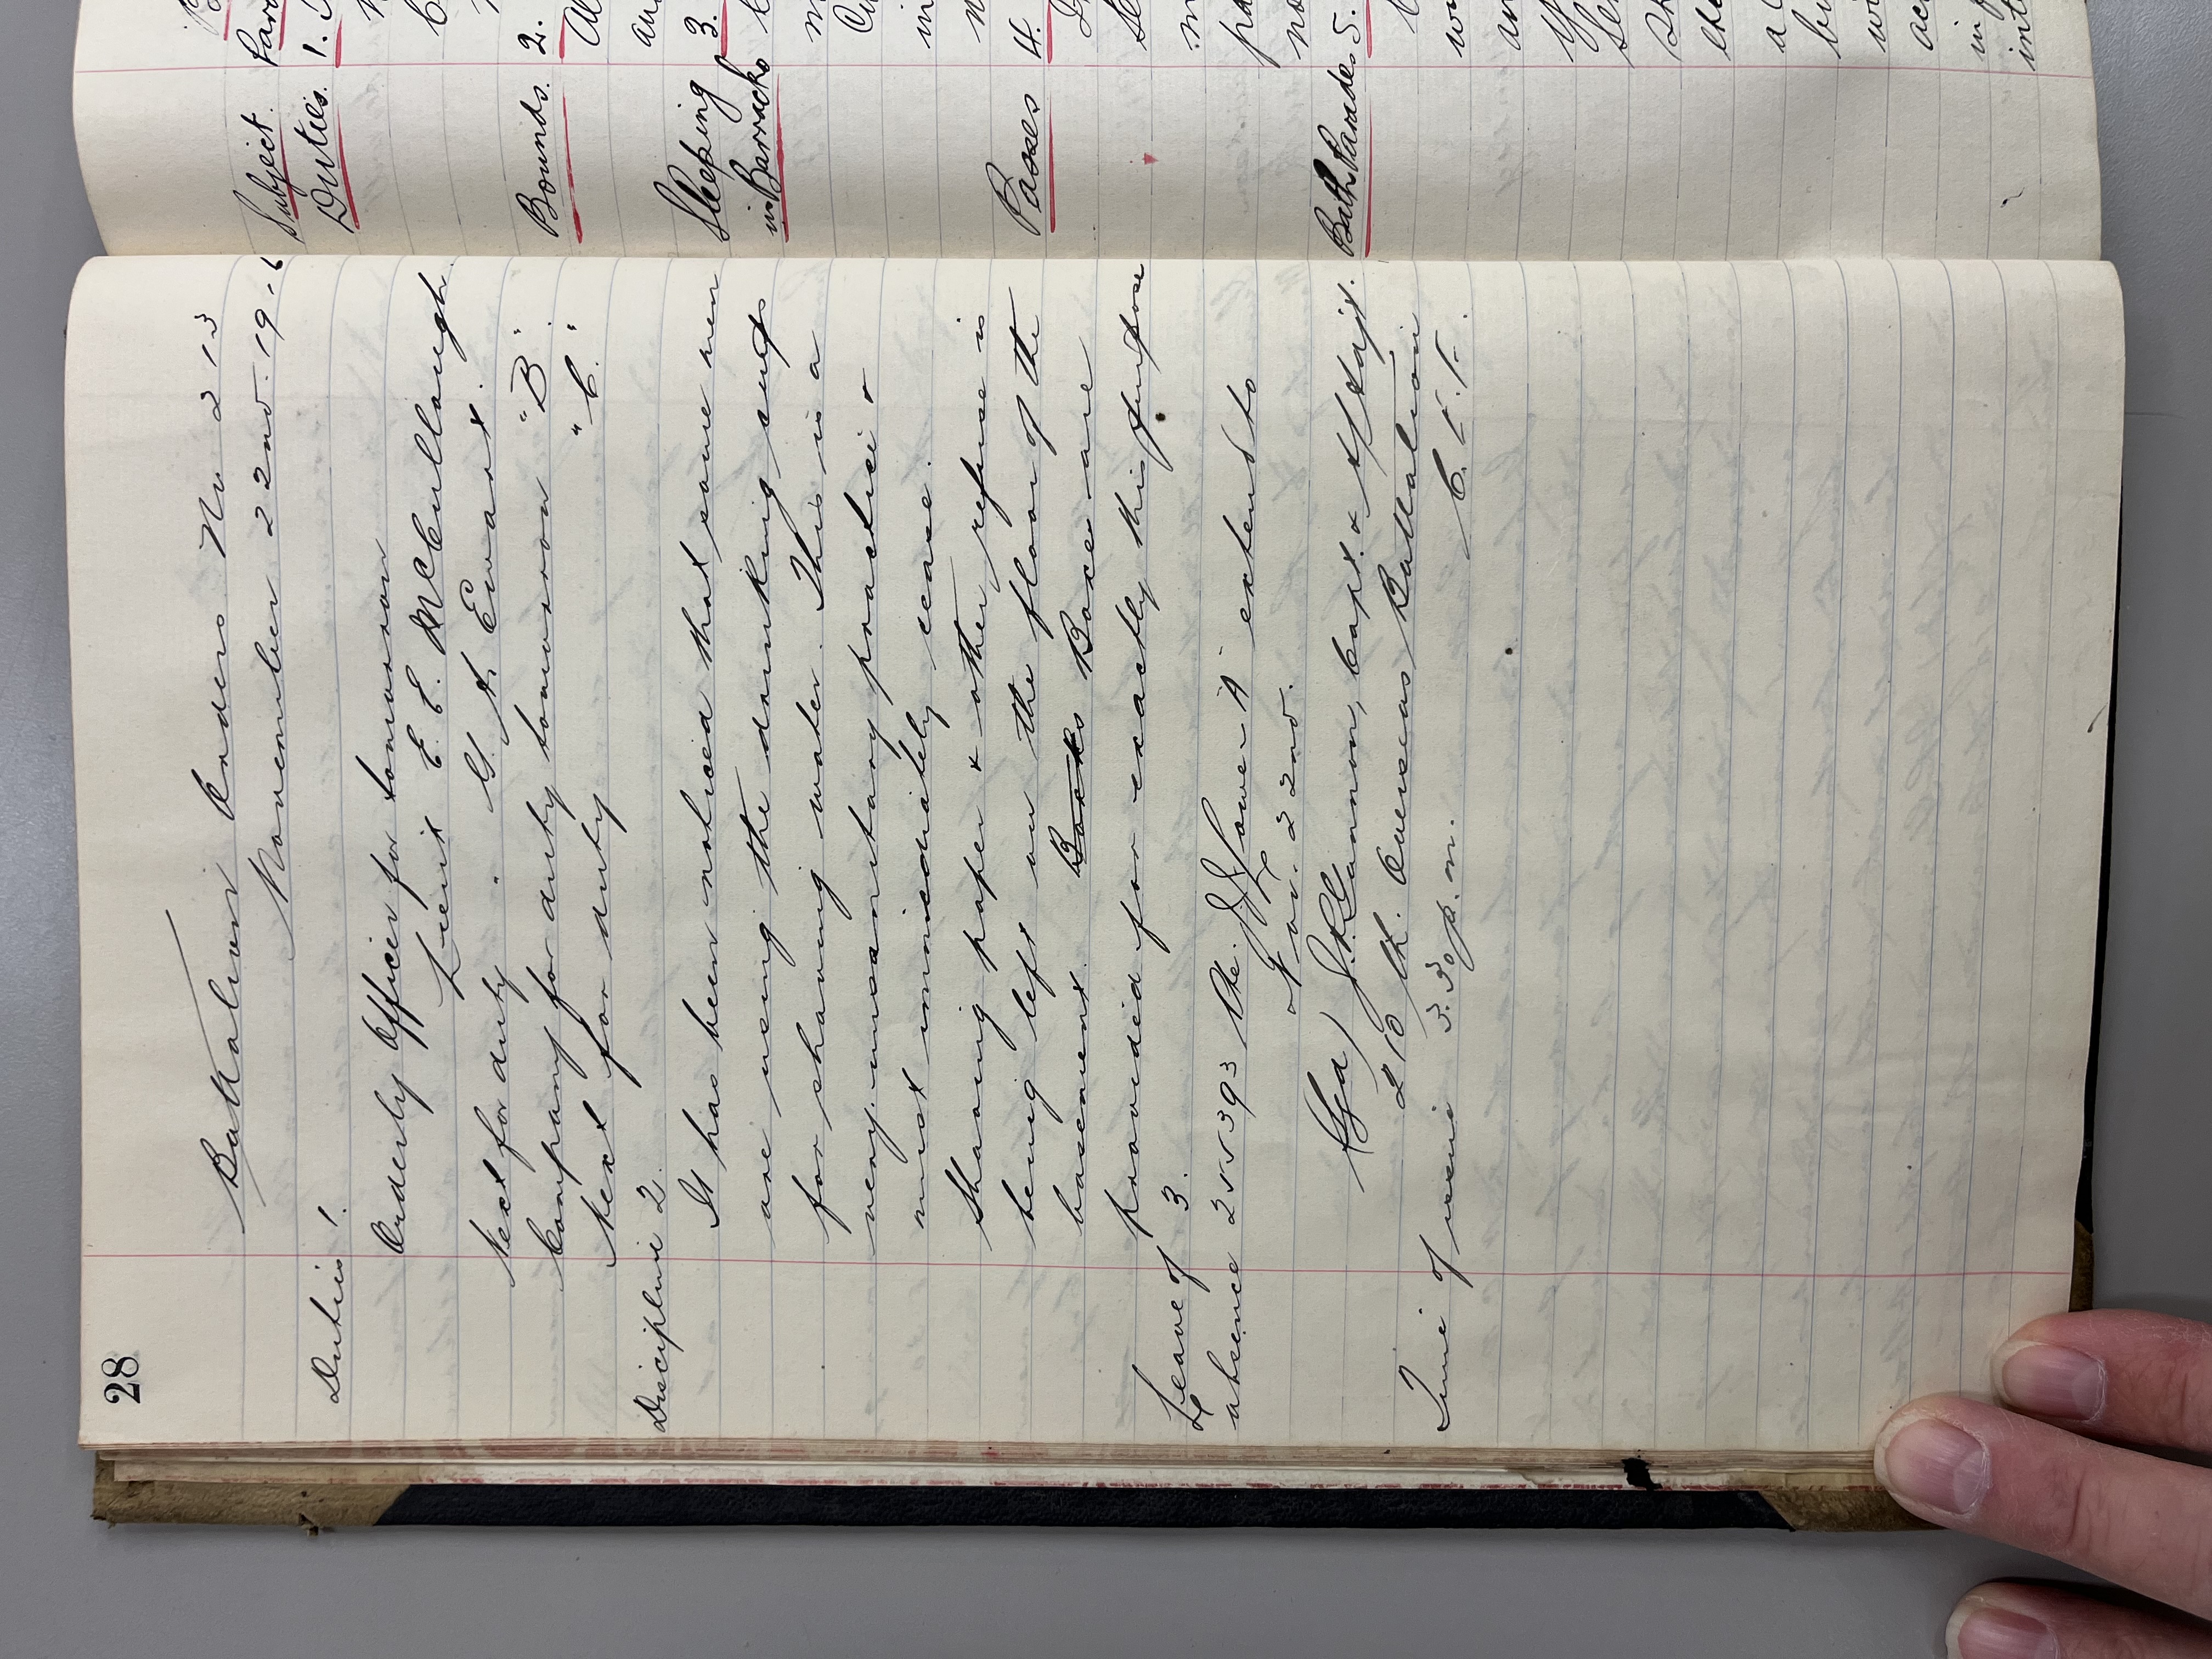 28
Battalion Orders No 213
November 22nd. 1916
Duties 1.
Orderly Officer for tomorrow
Lieut E. E. McCullough
Next for duty " G. A. Ewart.
Company for duty tomorrow "B"
Next for duty "C."
Discipline 2.
It has been noticed that some men
are using the drinking cups
for shaving water. This is a
very unsanitary practice &
must immediately cease.
Shaving paper & other refuse is
being left on the floor of the
basement. Books Boxes are
provided for exactly this purpose
Leave of 3.
absence 255393 Pte. Lowe A extend to
Nov. 22nd.
(Sgd) Gunnon, Capt. & A/Adjt.
210th. Overseas Battalion
C. E. F.
Time of issue 3.30 p.m.
Subject. Para
Duties. 1.
Bounds. 2.
Sleeping 3.
in Barracks
Passes 4.
Bath Parades 5.